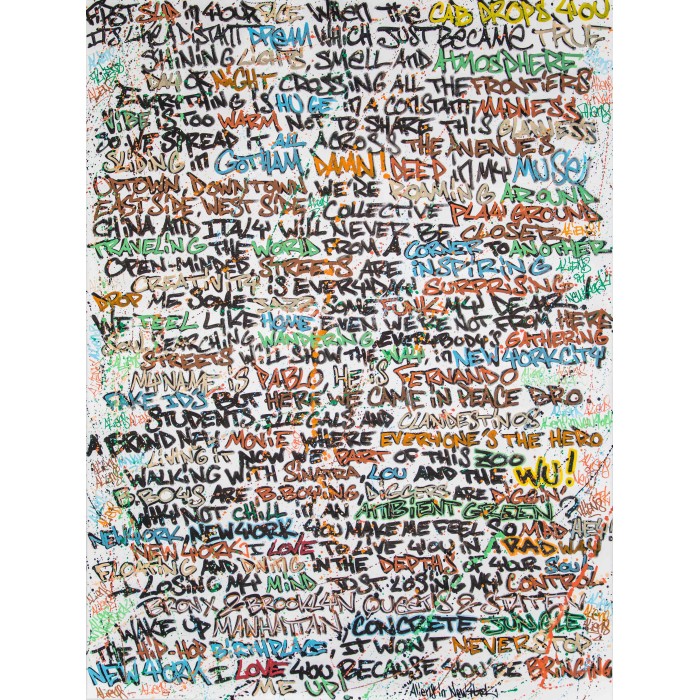 FIRST SLAP IN YOUR FACE WHEN THE CAB DROPS YOU
IT'S LIKE A DISTANT DREAM WHICH JUST BECAME TRUE
SHINING LIGHTS SMELL AND ATMOSPHERE
DAY OR NIGHT CROSSING ALL THE FRONTIERS
EVERYTHING IS HUGE IN A CONSTANT MADNESS
VIBE IS TOO WARM NOT TO SHARE THIS GLADNESS
SO WE SPREAD IT ALL ACROSS THE AVENUES
SLIDING IN GOTHAM, DAMN! DEEP IN MY MUSE
UPTOWN, DOWNTOWN, WE'RE ROAMING AROUND
EAST SIDE WEST SIDE, COLLECTIVE PLAYGROUND
CHINA AND ITALY WILL NEVER BE CLOSER
TRAVELING THE WORLD FROM A CORNER TO ANOTHER
OPEN-MINDED STREETS ARE INSPIRING
CREATIVITY IS EVERYDAY SURPRISING
DROP ME SOME JAZZ SOME FUNK MY DEAR
WE FEEL LIKE HOME EVEN WE'RE NOT FROM HERE
SEARCHING WANDERING EVERYBODY'S GATHERING
STREETS WILL SHOW THE WAY IN NEW YORK CITY
MY NAME IS PABLO HE IS FERNANDO
FAKE IDS BUT HERE WE CAME IN PEACE BRO
STUDENTS ILLEGALS AND CLANDESTINOS
A BRAND NEW MOVIE WHERE EVERYONE'S THE HERO
LIVING IT NOW WE PART OF THIS ZOO
WALKING WITH SINATRA, LOU AND THE WU!
B.BOYS ARE B.BOYING, DIGGERS ARE DIGGIN'
WHY NOT CHILL IN AN AMBIENT GREEN?
NEW YORK, NEW YORK YOU MAKE ME FEEL SO MAD HEY!
NEW YORK I LOVE TO LIVE YOU IN A RAD WAY
FLOATING AND DIVING IN THE DEPTHS OF YOUR SOUL
LOSING MY MIND JUST LOSING MY CONTROL
BRONX & BROOKLYN QUEENS & STATT
WAKE UP MANHATTAN, CONCRETE JUNGLE
THE HIP-HOP BIRTHPLACE IT WON'T NEVER STOP
NEW YORK I LOVE YOU BECAUSE YOU'RE BRINGING
ME UP!
Aliens in New York